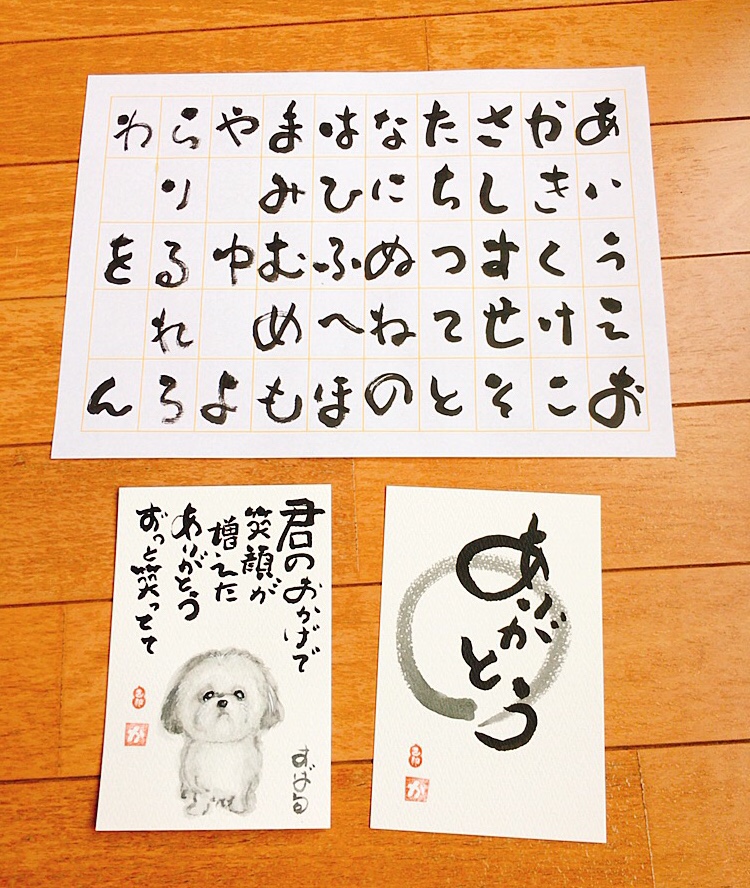 あいうえお
かきくけこ
さしすせそ
たちつてと
なにぬねの
はひふへほ
まみむめも
やゆよ
らりるれろ
わをん
君のおかげで
笑顔が
増えた
ありがとう
ずっと笑ってて
すばる
が
ありがとう
が